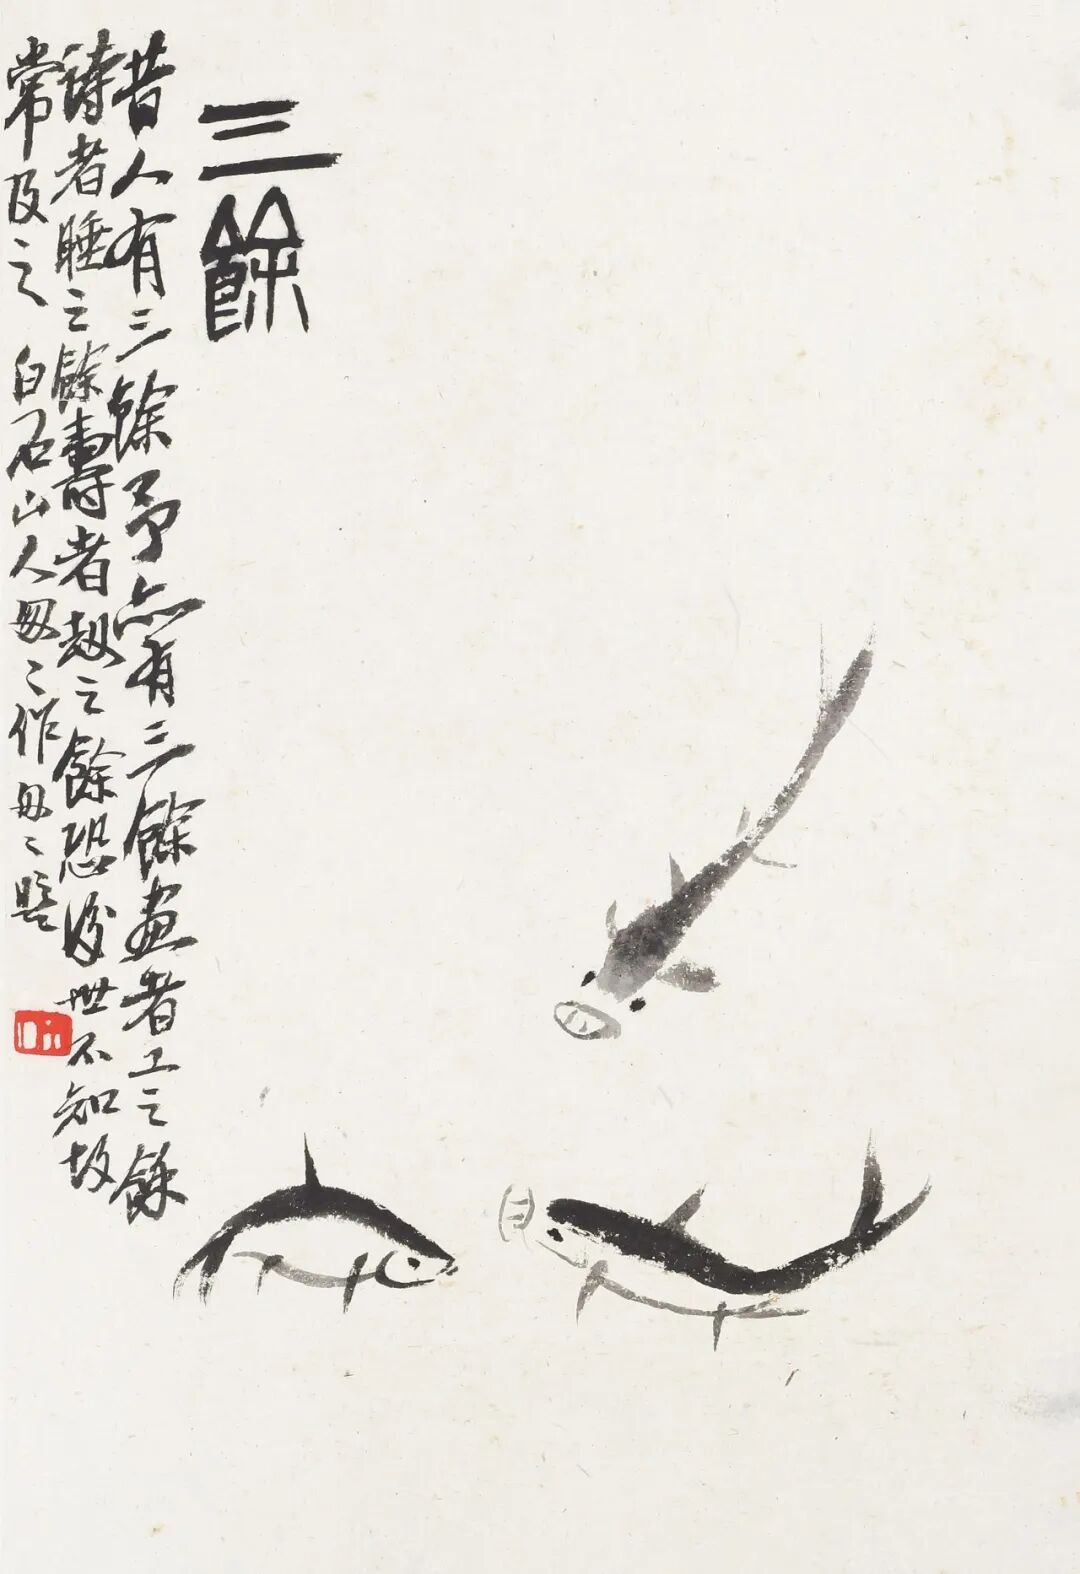 三餘
昔人有三餘予亦有三餘畫者工之餘
詩者睡之餘壽者劫之餘恐後世不知故
常及之 白石山人每々作每々題